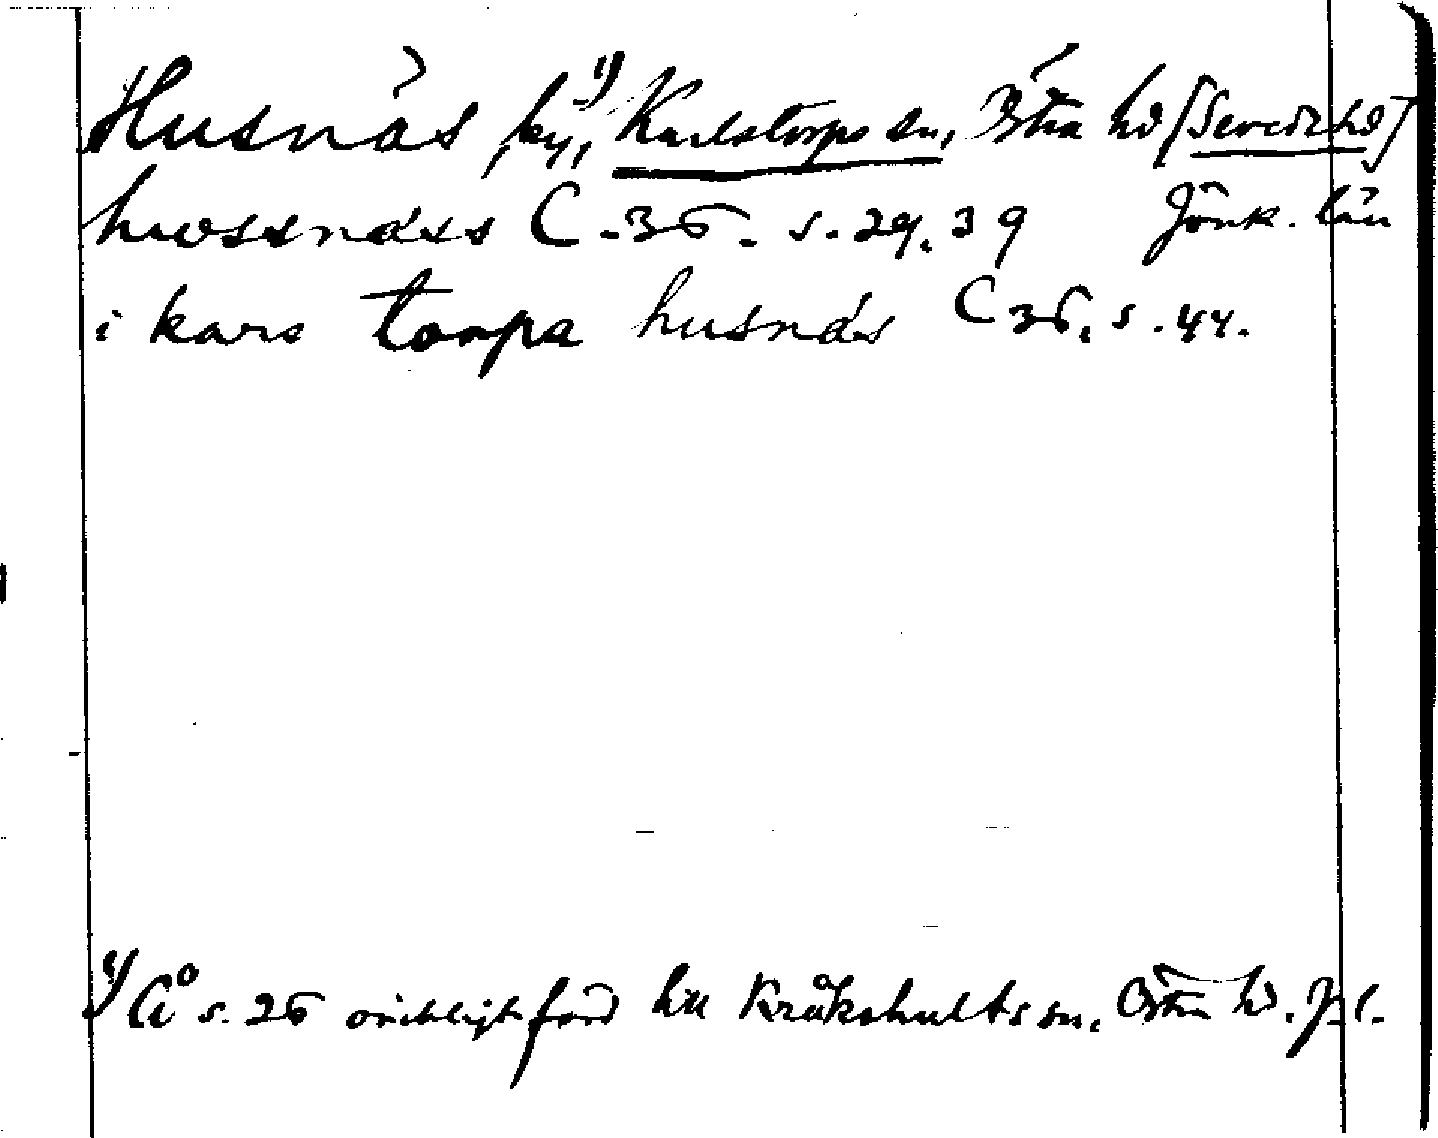 Husnäs, by,¹⁾ Karlstorps sn, Östra hd [Sevede hd]
hwssnäss C.36. s. 29, 39 Jönk. län
i kars torpa husnäs C 36, s. 44.
¹⁾ Å s. 26 oriktigt förd till Kråkshults sn, Östra hd. J. l.